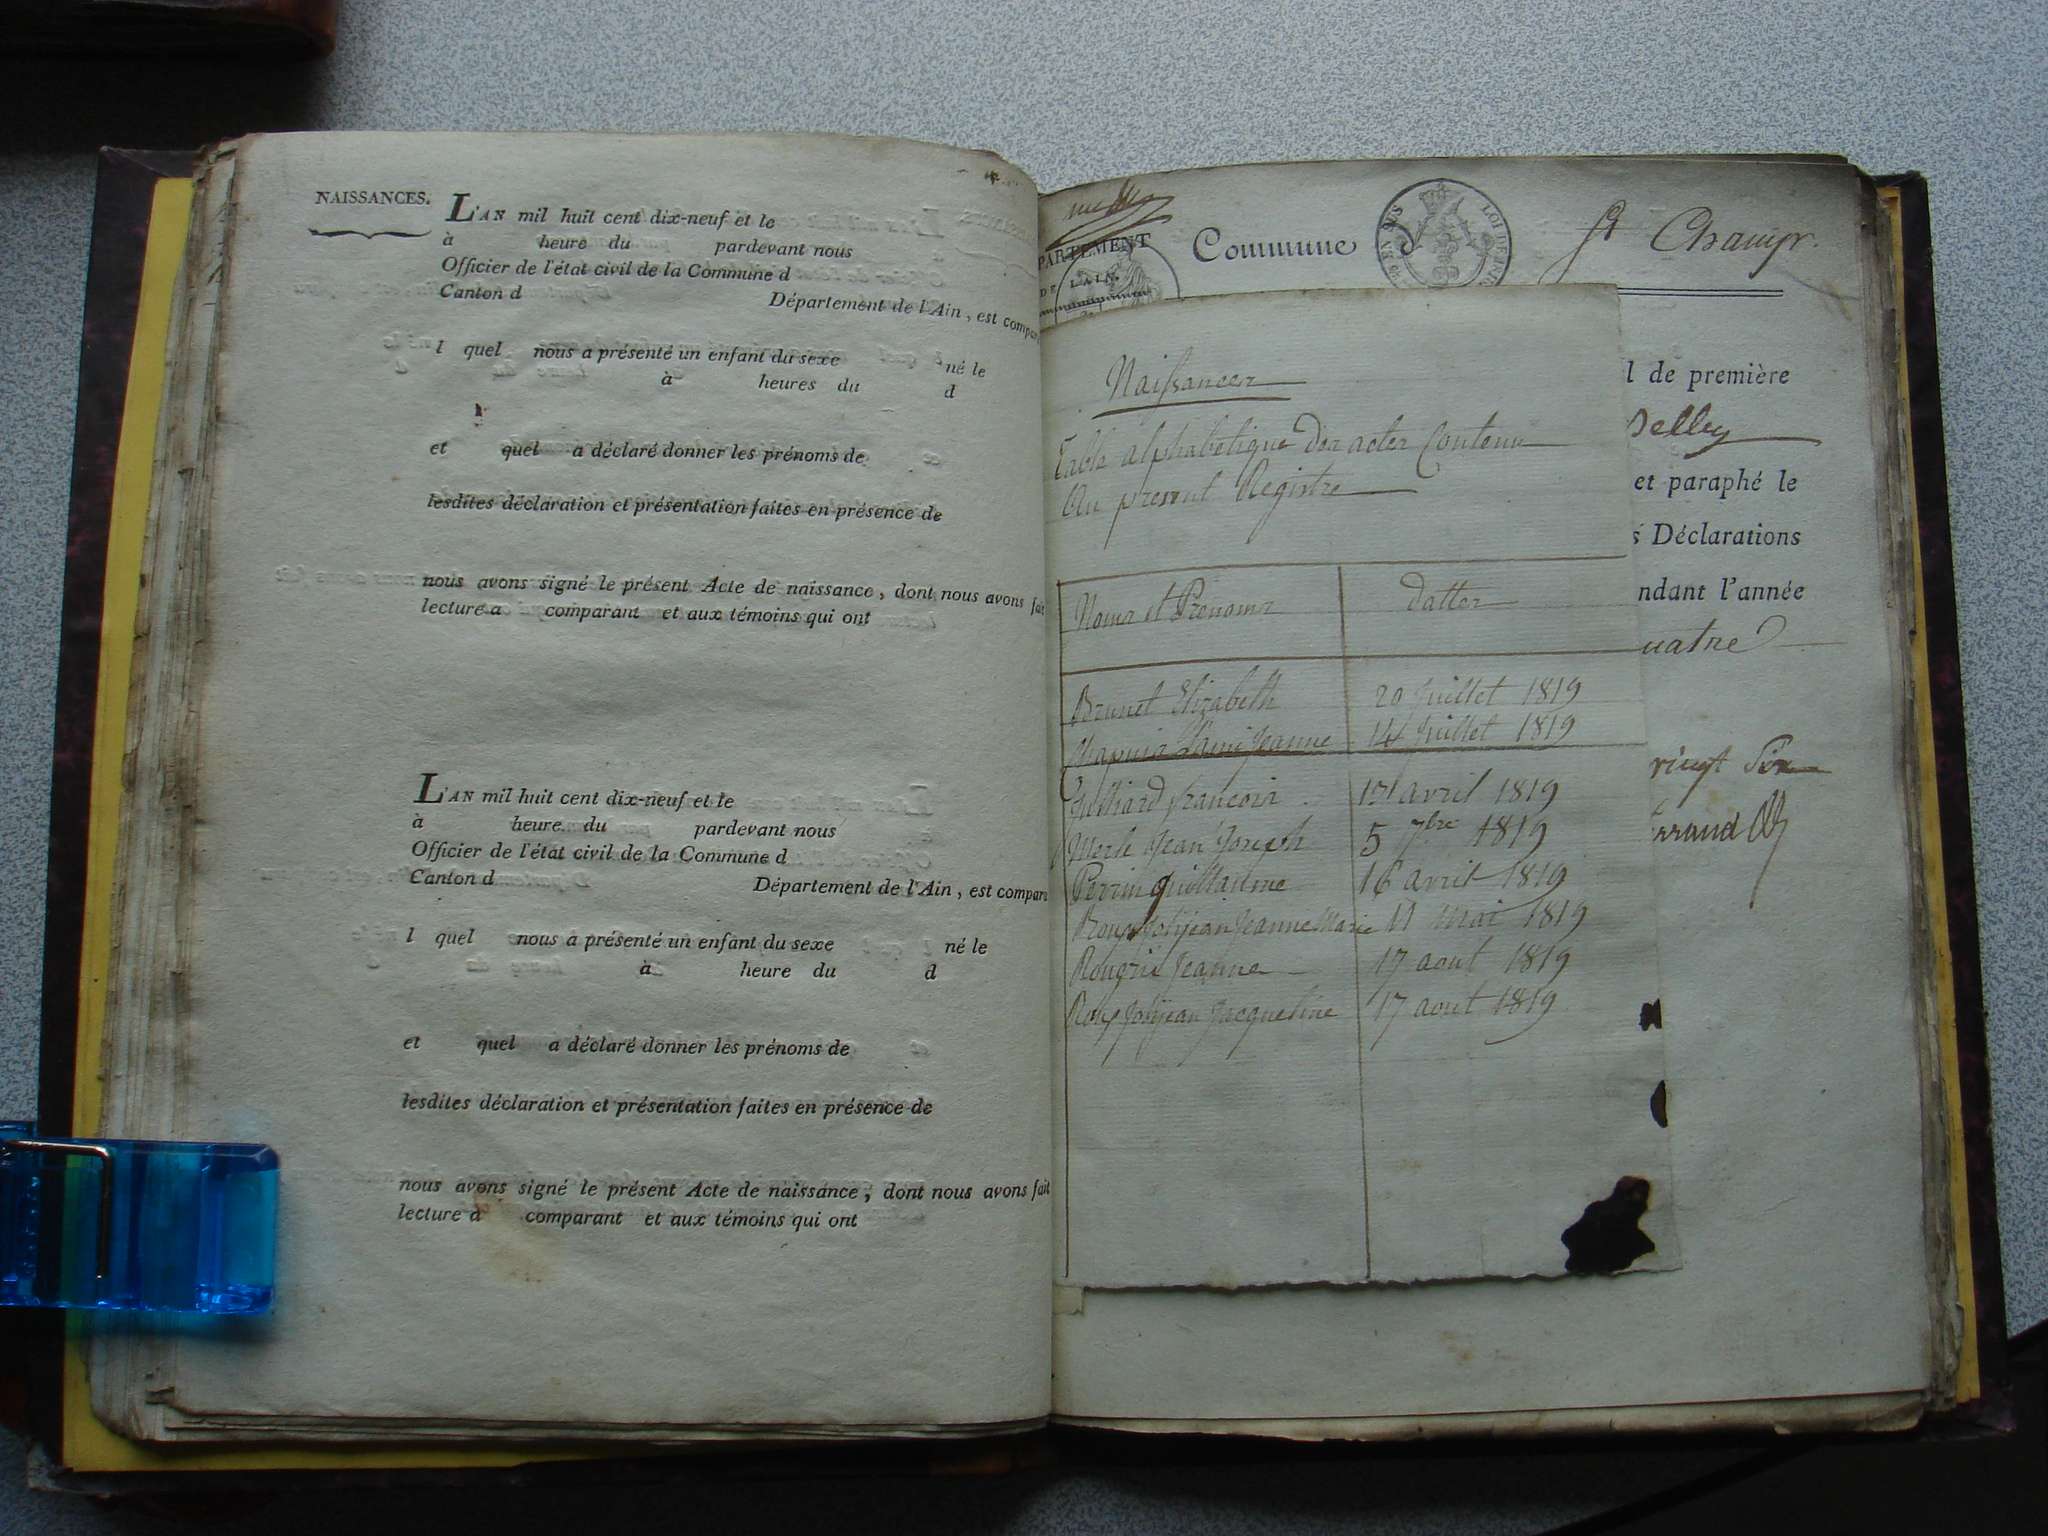 NAISSANCES.
L'AN mil huit cent dix-neuf et le
à heure du pardevant nous
Officier de l'état civil de la Commune d
Canton d Département de l'Ain, est compar
l quel nous a présenté un enfant du sexe né le
à heures du d
et quel a déclaré donner les prénoms de
lesdites déclaration et présentation faites en présence de
nous avons signé le présent Acte de naissance, dont nous avons fait
lecture a comparant et aux témoins qui ont
L'AN mil huit cent dix-neuf et le
à heure du pardevant nous
Officier de l'état civil de la Commune d
Canton d Département de l'Ain, est compara
l quel nous a présenté un enfant du sexe né le
à heure du d
et quel a déclaré donner les prénoms de
lesdites déclaration et présentation faites en présence de
nous avons signé le présent Acte de naissance, dont nous avons fait
lecture a comparant et aux témoins qui ont
PARTEMENT
DE L'AIN.
Commune
LOI DE
St Champ.
Naissances
Table alphabetique des actes Contenu
Au present Registre
Noms et Prenoms dattes
Brunet Elizabeth 20 Juillet 1819
Chapuis Jeanne 14 Juillet 1819
Juilliard francois 17 avril 1819
Merle Jean Joseph 5 7bre 1819
Perrin guillaume 16 avril 1819
Roux Jolijean Jeanne Marie 11 Mai 1819
Jeanne 17 aout 1819
Roux Jolijean Jacqueline 17 aout 1819
l de première
Belley
et paraphé le
s Déclarations
ndant l'année
uatre
vingt